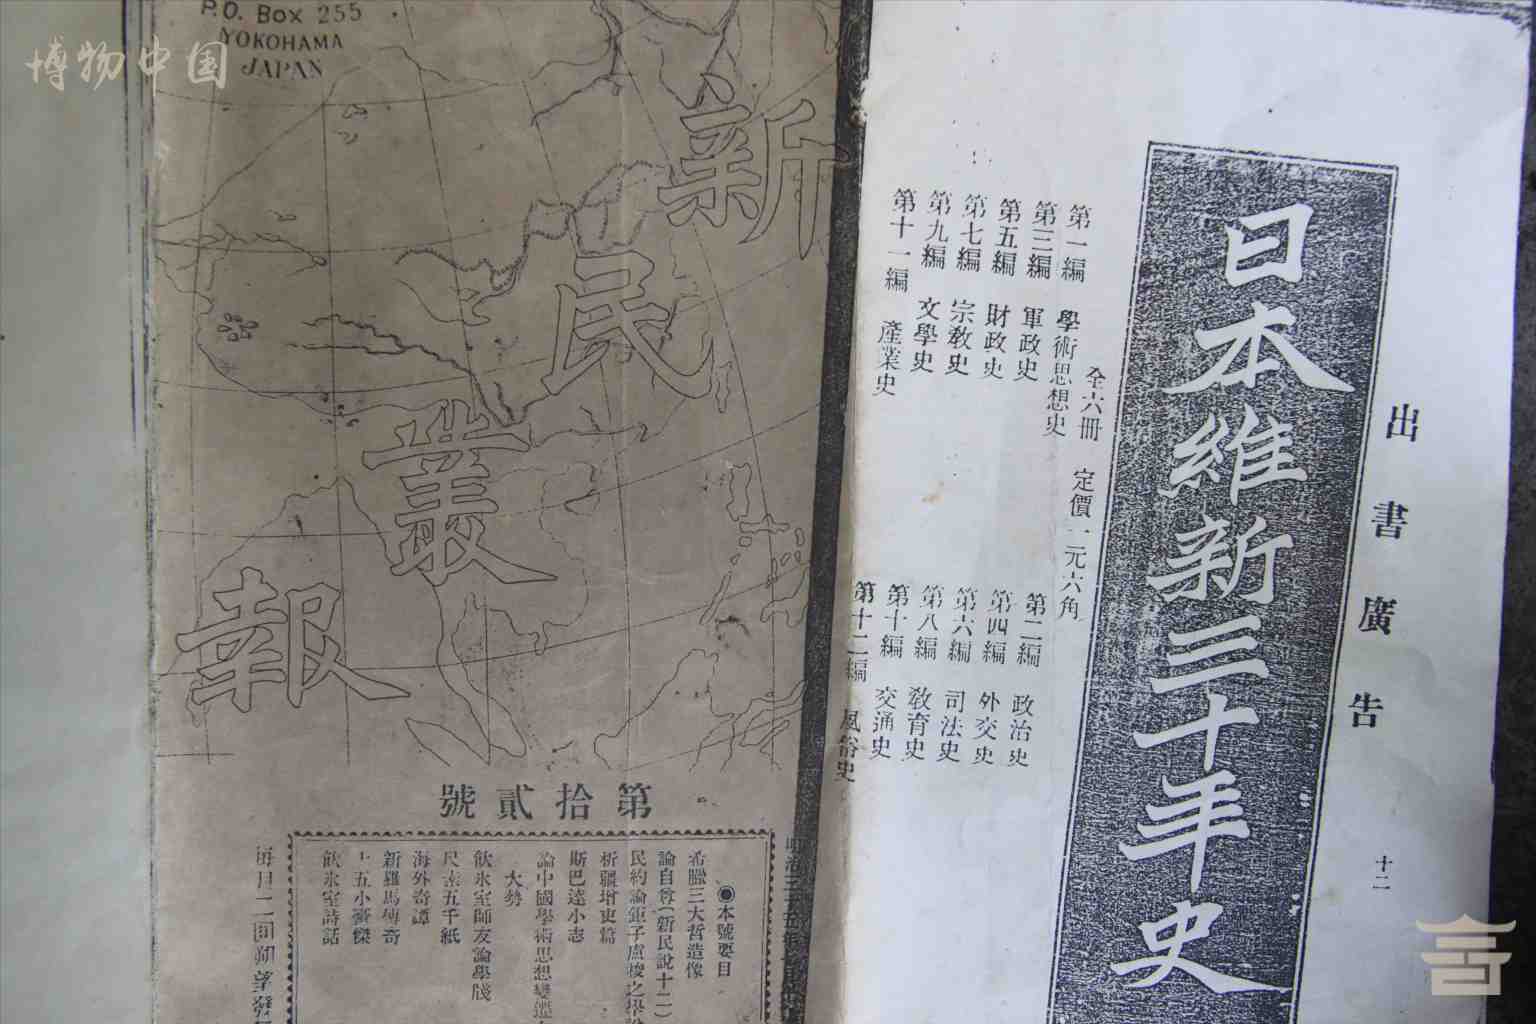 博物中国
P.O. Box 255
YOKOHAMA
JAPAN
新民叢報
第拾貳號
◉本號要目
希臘三大哲造像
論自尊(新民說十二)
民約論鉅子盧梭之學說
析疆增吏篇
斯巴達小志
論中國學術思想變遷
大勢
飲氷室師友論學牋
尺素五千紙
海外奇譚
新羅馬傳奇
十五小豪傑
飲氷室詩話
每月二回朔望發
出書廣告
十二
日本維新三十年史
全六冊 定價一元六角
第一編 學術思想史
第二編 政治史
第三編 軍政史
第四編 外交史
第五編 財政史
第六編 司法史
第七編 宗教史
第八編 教育史
第九編 文學史
第十編 交通史
第十一編 產業史
第十二編 風俗史